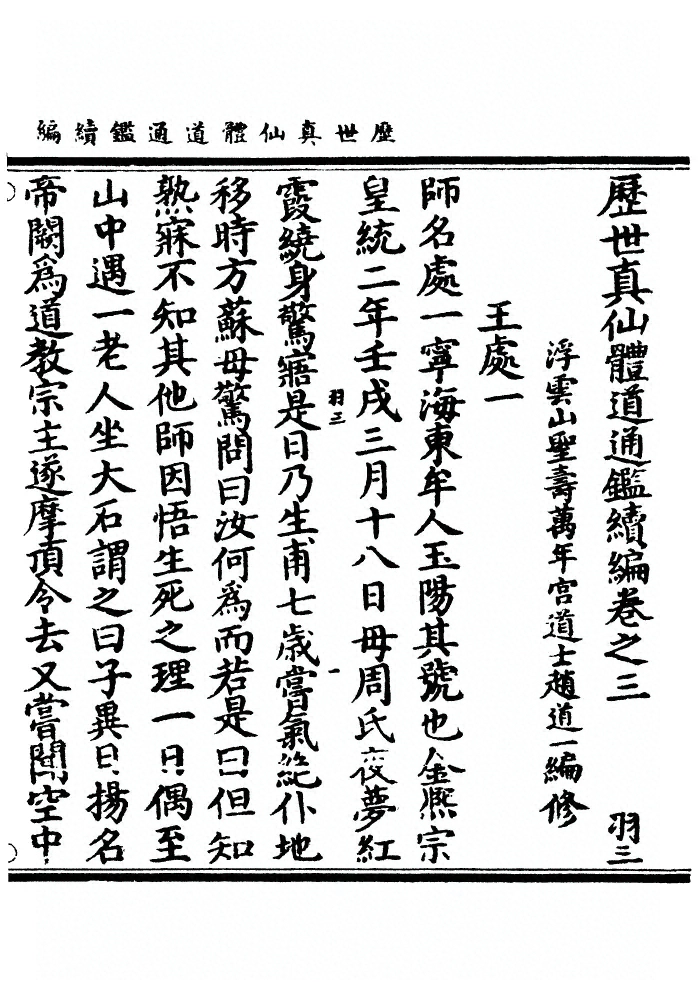 歷世真仙體道通鑑續編
歷世真仙體道通鑑續編卷之三 羽三
浮雲山聖壽萬年宮道士趙道一編修
王處一
師名處一寧海東牟人玉陽其號也金熈宗
皇統二年壬戌三月十八日毋周氏夜夢紅
霞繞身驚寤是日乃生甫七歲嘗氣絕仆地
羽三 一
移時方蘇毋驚問曰汝何爲而若是曰但知
熟寐不知其他師因悟生死之理一日偶至
山中遇一老人坐大石謂之曰子異日揚名
帝闕爲道教宗主遂摩頂令去又嘗聞空中